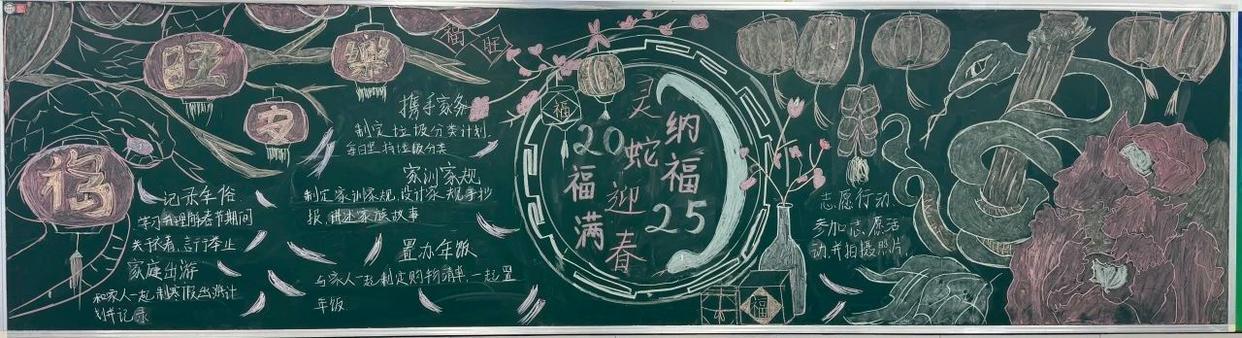 旺
樂
安
福
福
旺
记录年俗
学习我理解春节期间
关怀着,言行举止
家庭出游
和家人一起,制寒假出游计
划并记录
携手家务
制定垃圾分类计划,
每日坚持垃圾分类
家训家规
制定家训家规,设计家规手抄
报,讲述家族故事
置办年饭
与家人一起制定购物清单,一起置
年饭
福
灵蛇迎春
纳福
2025
福满
福
志愿行动
参加志愿活
动,并拍摄照片,